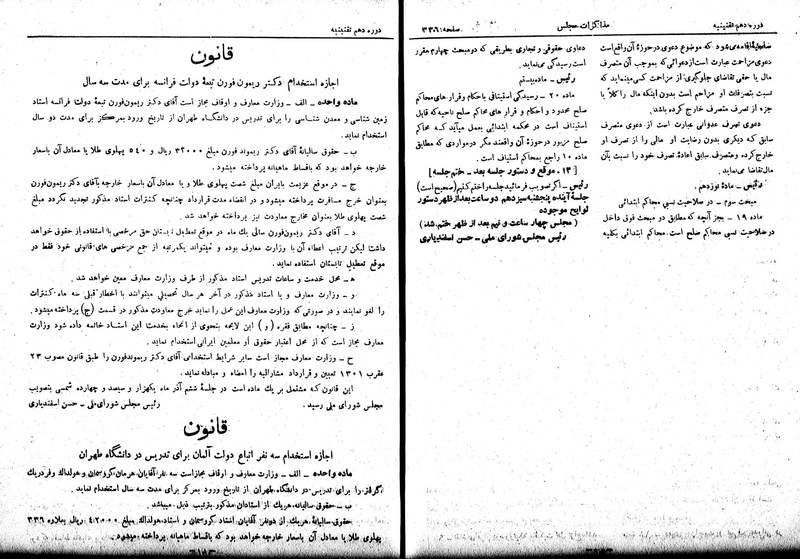 دوره دهم تقنینیه
مذاکرات مجلس
صفحه: ۳۳۶
صلحیه اقامه می‌شود که موضوع دعوی در حوزۀ آن واقع است
دعوی مزاحمت عبارت است از دعوائی که بموجب آن متصرف
مال یا حقی تقاضای جلوگیری از مزاحمت کسی مینماید که
نسبت بتصرفات او مزاحم است بدون اینکه مال را کلاً یا
جزء از تصرف متصرف خارج کرده باشد.
دعوی تصرف عدوانی عبارت است از دعوی متصرف
سابق که دیگری بدون رضایت او مالی را از تصرف او
خارج کرده و متصرف سابق اعادۀ تصرف خود را نسبت بآن
مال تقاضا می‌نماید.
رئیس – مادۀ نوزدهم.
مبحث سوم – در صلاحیت نسبی محاکم ابتدائی
ماده ۱۹ – بجز آنچه که مطابق دو مبحث فوق داخل
در صلاحیت نسبی محاکم صلح است. محاکم ابتدائی بکلیه
دعاوی حقوقی و تجاری بطریقی که دو مبحث چهارم مقرر
است رسیدگی می‌نماید.
رئیس – ماده بیستم
ماده ۲۰ – رسیدگی استینافی باحکام و قرارهای محاکم
صلح محدود و احکام و قرارهای محاکم صلح ناحیه که قابل
استیناف است در محکمه ابتدائی بعمل میآید که محاکم
صلح مزبور در حوزۀ آن واقعند مگر در مواردی که مطابق
ماده ۱۰ راجع بمحاکم استیناف است.
[ ۱۳ – موقع و دستور جلسه بعد – ختم جلسه ]
رئیس – اگر تصویب فرمائید جلسه را ختم کنیم (صحیح است)
جلسۀ آینده پنجشنبه سیزدهم دو ساعت بعد از ظهر دستور
لوایح موجوده
( مجلس چهار ساعت و نیم بعد از ظهر ختم شد )
رئیس مجلس شورای ملی – حسن اسفندیاری
دوره دهم تقنینیه
قانون
اجازه استخدام دکتر ریمون فورن تبعۀ دولت فرانسه برای مدت سه سال
ماده واحده – الف – وزارت معارف و اوقاف مجاز است آقای دکتر ریمون فورن تبعۀ دولت فرانسه استاد
زمین شناسی و معدن شناسی را برای تدریس در دانشگاه طهران از تاریخ ورود بمرکز برای مدت دو سال
استخدام نماید.
ب – حقوق سالیانۀ آقای دکتر ریموند فورن مبلغ ۳۲۰۰۰ ریال و ۵۴۰ پهلوی طلا یا معادل آن باسعار
خارجه خواهد بود که باقساط ماهیانه پرداخته میشود.
ج – در موقع عزیمت بایران مبلغ شصت پهلوی طلا و یا معادل آن باسعار خارجه بآقای دکتر ریمون فورن
بعنوان خرج مسافرت پرداخته میشود و در انقضاء مدت قرارداد چنانچه کنترات استاد مذکور تجدید نگردد مبلغ
شصت پهلوی طلا بعنوان مخارج معاودت نیز پرداخته خواهد شد.
د – آقای دکتر ریمون فورن سالی یک ماه در موقع تعطیل تابستان حق مرخصی با استفاده از حقوق خواهد
داشت لیکن ترتیب اعطاء آن با وزارت معارف بوده و میتواند یکمرتبه از جمع مرخصی های قانونی خود فقط در
موقع تعطیل تابستان استفاده نماید.
ه – محل خدمت و ساعات تدریس استاد مذکور از طرف وزارت معارف معین خواهد شد.
و – وزارت معارف و یا استاد مذکور در آخر هر سال تحصیلی میتوانند با اخطار قبلی سه ماه کنترات
را لغو نمایند و در صورتی که وزارت معارف این عمل را نماید خرج معاودت مذکور در قسمت (ج) پرداخته میشود.
ز – چنانچه مطابق فقره ( و ) این لایحه بنحوی از انحاء بخدمت این استاد خاتمه داده شود وزارت
معارف مجاز است که از محل اعتبار حقوق او معلمین ایرانی استخدام نماید.
ح – وزارت معارف مجاز است سایر شرایط استخدامی آقای دکتر ریموند فورن را طبق قانون مصوب ۲۳
عقرب ۱۳۰۱ تعیین و قرارداد مشارالیه را امضاء و مبادله نماید.
این قانون که مشتمل بر یک ماده است در جلسۀ ششم آذر ماه یکهزار و سیصد و چهارده شمسی بتصویب
مجلس شورای ملی رسید.
رئیس مجلس شورای ملی – حسن اسفندیاری
قانون
اجازه استخدام سه نفر اتباع دولت آلمان برای تدریس در دانشگاه طهران
ماده واحده – الف – وزارت معارف و اوقاف مجاز است سه نفر آقایان هرمان کروسمان و هولداک و فردریک
گرفتز را برای تدریس در دانشگاه طهران از تاریخ ورود بمرکز برای مدت سه سال استخدام نماید.
ب – حقوق سالیانه هریک از استادان مذکور بترتیب ذیل میباشد.
حقوق سالیانه هریک از دونفر آقایان استاد کروسمان و استاد هولداک مبلغ ۴۲۰۰۰ ریال بعلاوه ۳۳۶
پهلوی طلا یا معادل آن باسعار خارجه خواهد بود که باقساط ماهیانه پرداخته میشود.